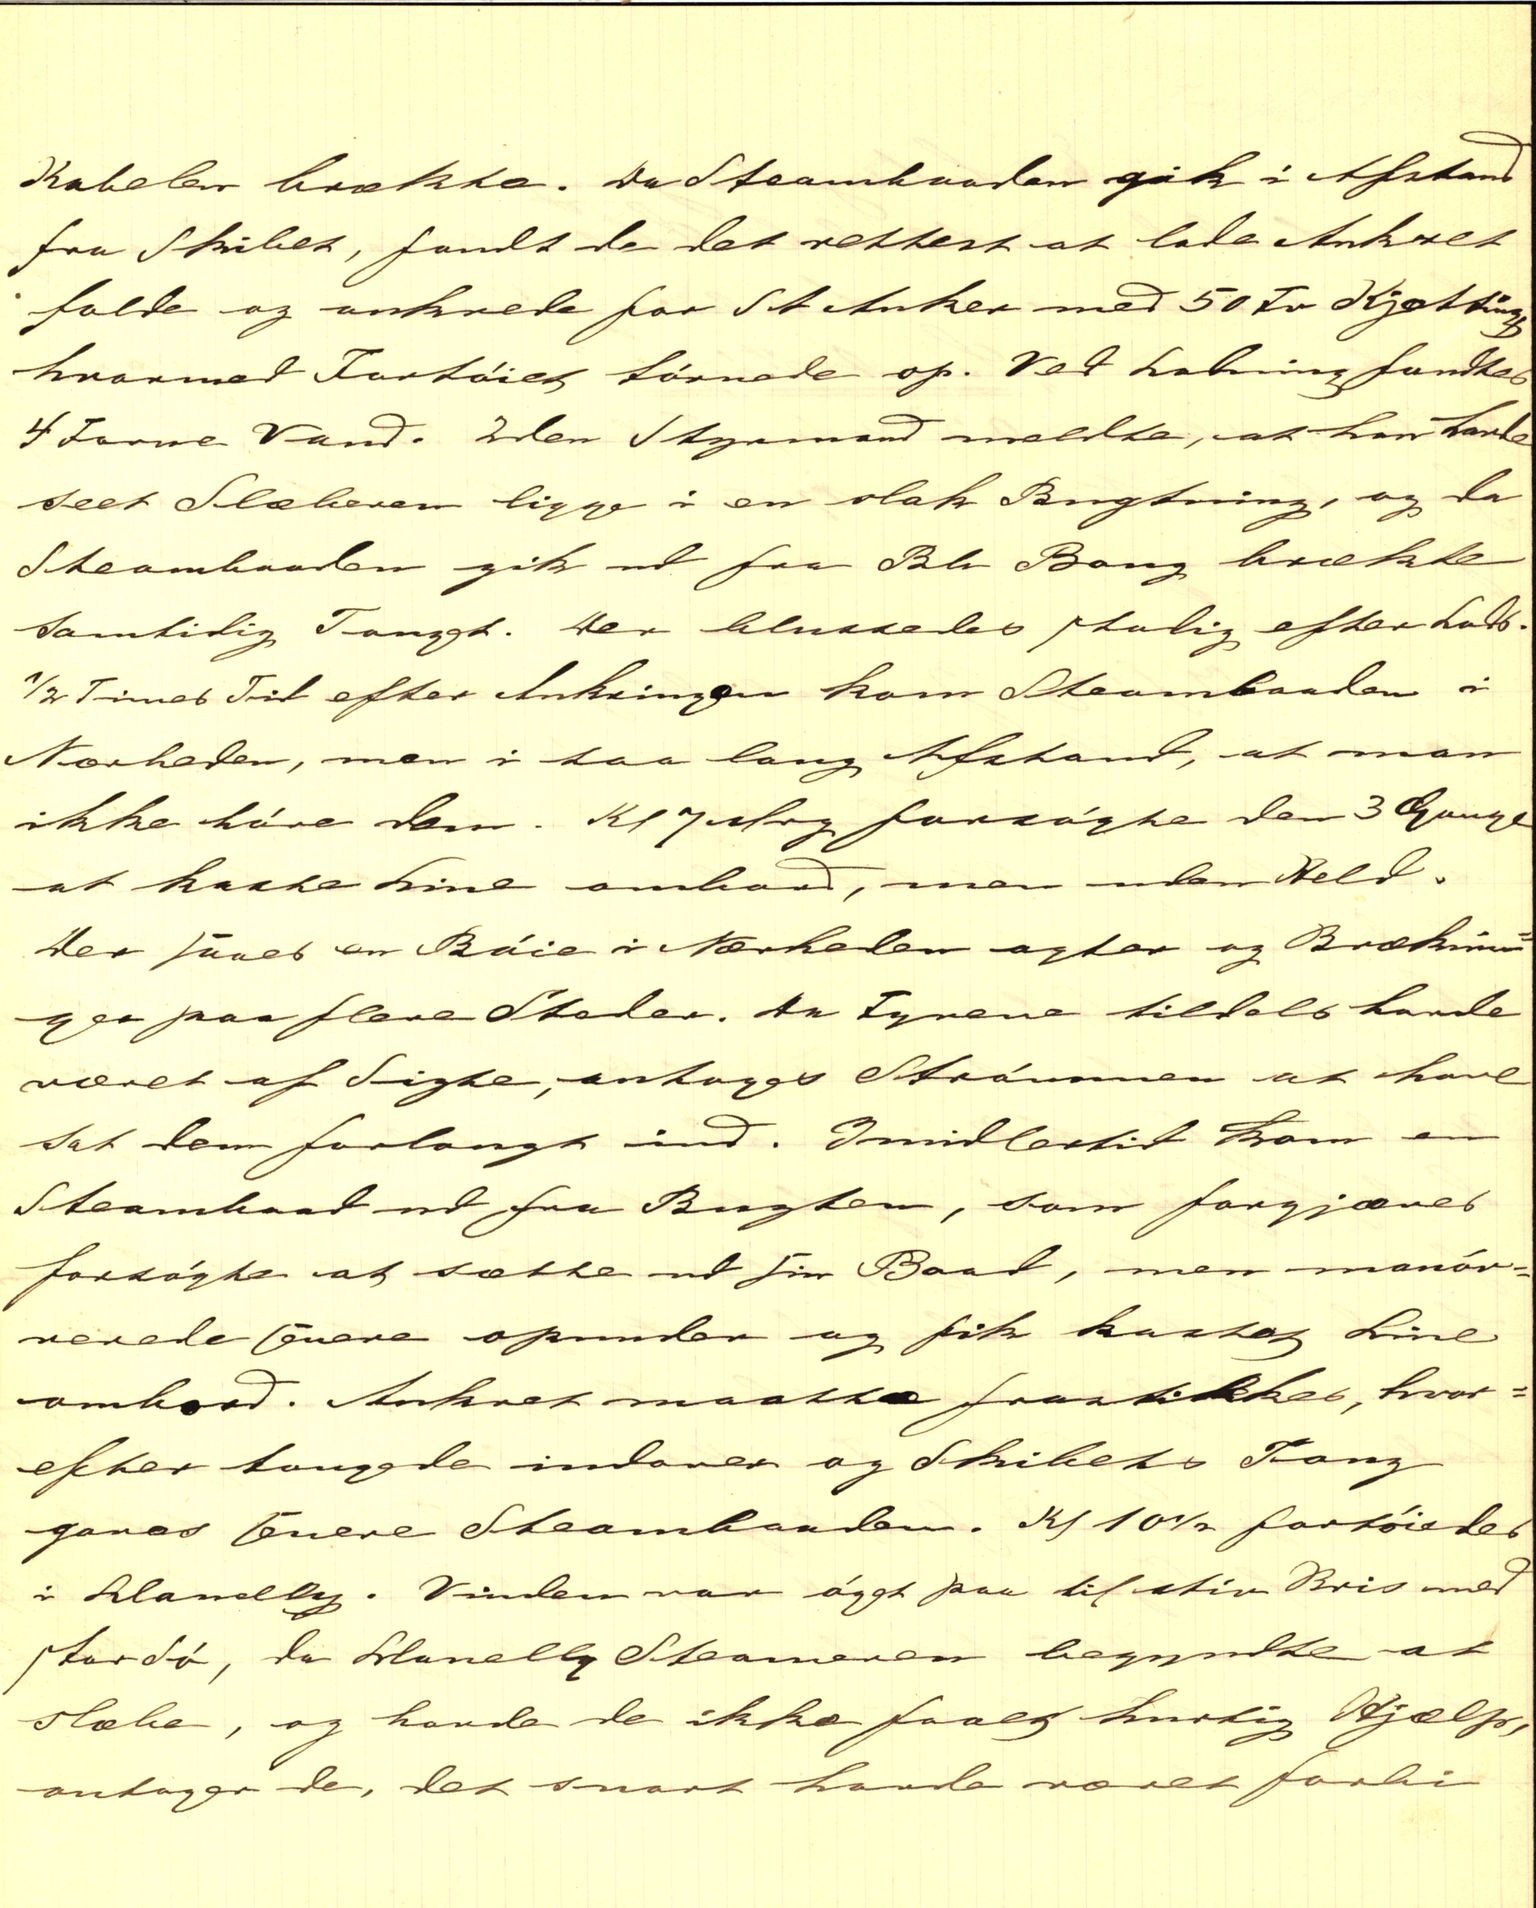 Kabelen brækkte. Da Steambaaden gik i Afstand
fra Skibet, fandt de det rettest at lade Ankret
falde og ankrede for St Anker med 50 Fv Kjetting
hvormed Fartöiet törnede op. Ved Lodning fandtes
4 Favne Vand. 2den Styrmand meldte, at han havde
seet Slæberen ligge i en slak Bugtning, og da
Steambaaden gik ud fra BB Boug brækkte
samtidig Touget. Der blussedes stadig efter Lods.
1/2 Times Tid efter Ankringen kom Steambaaden i
Nærheden, men i saa lang Afstand, at man
ikke höre dem. Kl 7 Mrg forsögte den 3 Gange
at kaste Line ombord, men uden Held.
Der saaes en Böie i Nærheden agter og Bræknin=
ger paa flere Steder. Da Fyrene tildels havde
været af Sigte, antages Strömmen at have
sat dem forlangt ind. Imidlertid kom en
Steambaad ud fra Bugten, som forgjæves
forsögte at sætte ud sin Baad, men manöv=
rerede senere opunder og fik kastet Line
ombord. Ankret maatte frastikkes, hvor=
efter tougede indover og Skibets Toug
gaves senere Steambaaden. Kl 10 1/2 fortöiedes
i Llanelly. Vinden var öget paa til stiv Bris med
stor Sö, da Llanelly Steameren begyndte at
slæbe, og havde de ikke faaet hurtig Hjælp,
antager de, det snart havde været forbi